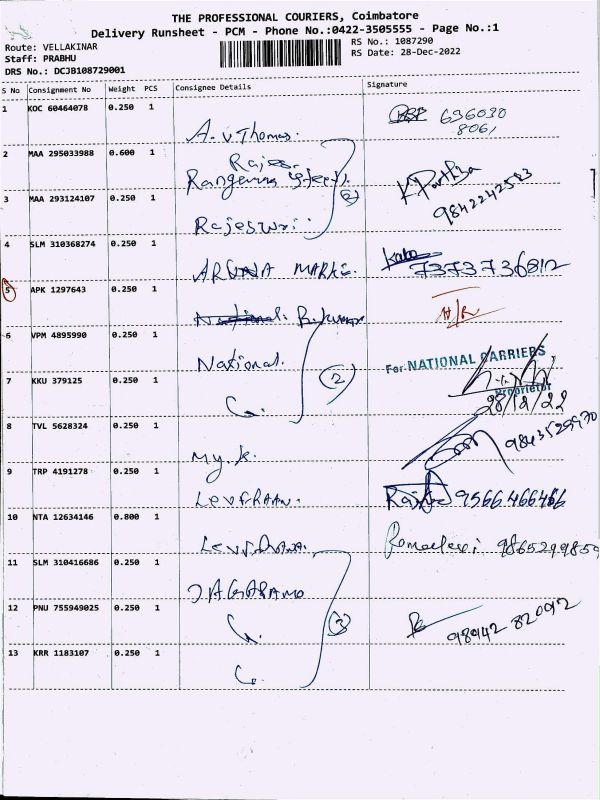 THE PROFESSIONAL COURIERS, Coimbatore
Delivery Runsheet - PCM - Phone No.:0422-3505555 - Page No.:1
Route: VELLAKINAR
RS No.: 1087290
Staff: PRABHU
RS Date: 28-Dec-2022
DRS No.: DCJB108729001
S No Consignment No Weight PCS Consignee Details Signature
1 KOC 60464078 0.250 1
A.V Thomas. 636030
8061
2 MAA 295033988 0.600 1
Rajes.
3 MAA 293124107 0.250 1
Rajeswari (2) 9842242583
4 SLM 310368274 0.250 1
ARUNA MARKE. 7373736812
5 APK 1297643 0.250 1
N/R
6 VPM 4895990 0.250 1
National. For NATIONAL CARRIERS
7 KKU 379125 0.250 1
(2) Proprietor
28/12/22
8 TVL 5628324 0.250 1
My.k. 9843529970
9 TRP 4191278 0.250 1
9566466466
10 NTA 12634146 0.800 1
9865299859
11 SLM 310416686 0.250 1
12 PNU 755949025 0.250 1
(3) 98942 82092
13 KRR 1183107 0.250 1